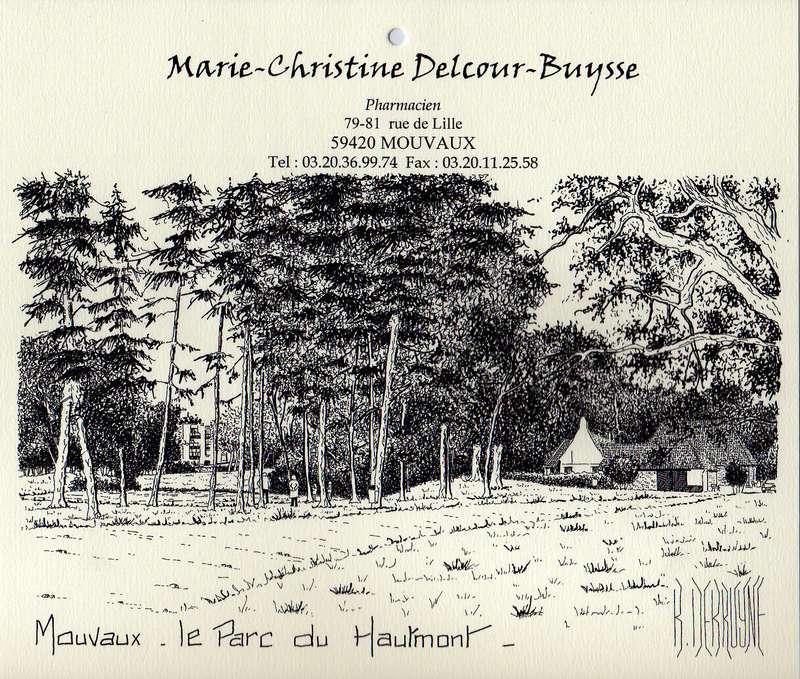 Marie-Christine Delcour-Buysse
Pharmacien
79-81 rue de Lille
59420 MOUVAUX
Tel : 03.20.36.99.74 Fax : 03.20.11.25.58
Mouvaux - le Parc du Hautmont -
R. DERRUYNE